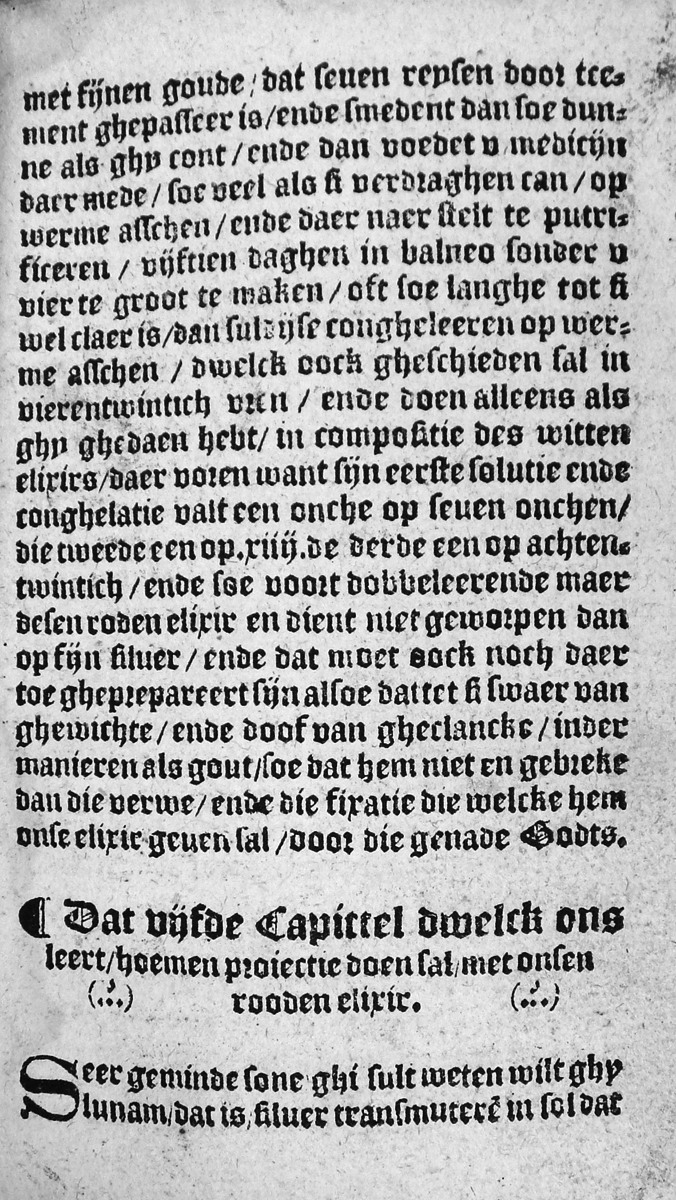 met fijnen goude/dat seuen reysen door tce⸗
ment ghepasseer is/ende smedent dan soe dun⸗
ne als ghy cont/ende dan voedet v medicijn
daer mede/soe veel als si verdraghen can/op
werme asschen/ende daer naer stelt te putri⸗
ficeren/vijftien daghen in balneo sonder v
vier te groot te maken/oft soe langhe tot si
wel claer is/dan suldijse congheleeren op wer⸗
me asschen/dwelck oock gheschieden sal in
vierentwintich vren/ende doen alleens als
ghy ghedaen hebt/in compositie des witten
elixirs/daer voren want sijn eerste solutie ende
conghelatie valt een onche op seuen onchen/
die tweede een op.xiiij.de derde een op achten⸗
twintich/ende soe voort dobbeleerende maer
desen roden elixir en dient niet geworpen dan
op fijn siluer/ende dat moet oock noch daer
toe gheprepareert sijn alsoe dattet si swaer van
ghewichte/ende doof van gheclancke/inder
manieren als gout/soe dat hem niet en gebreke
dan die verwe/ende die fixatie die welcke hem
onse elixir geuen sal/door die genade Godts.
¶ Dat vijfde Capittel dwelck ons
leert/hoemen proiectie doen sal/met onsen
rooden elixir.
Seer geminde sone ghi sult weten wilt ghy
lunam/dat is/siluer transmuterē in sol dat